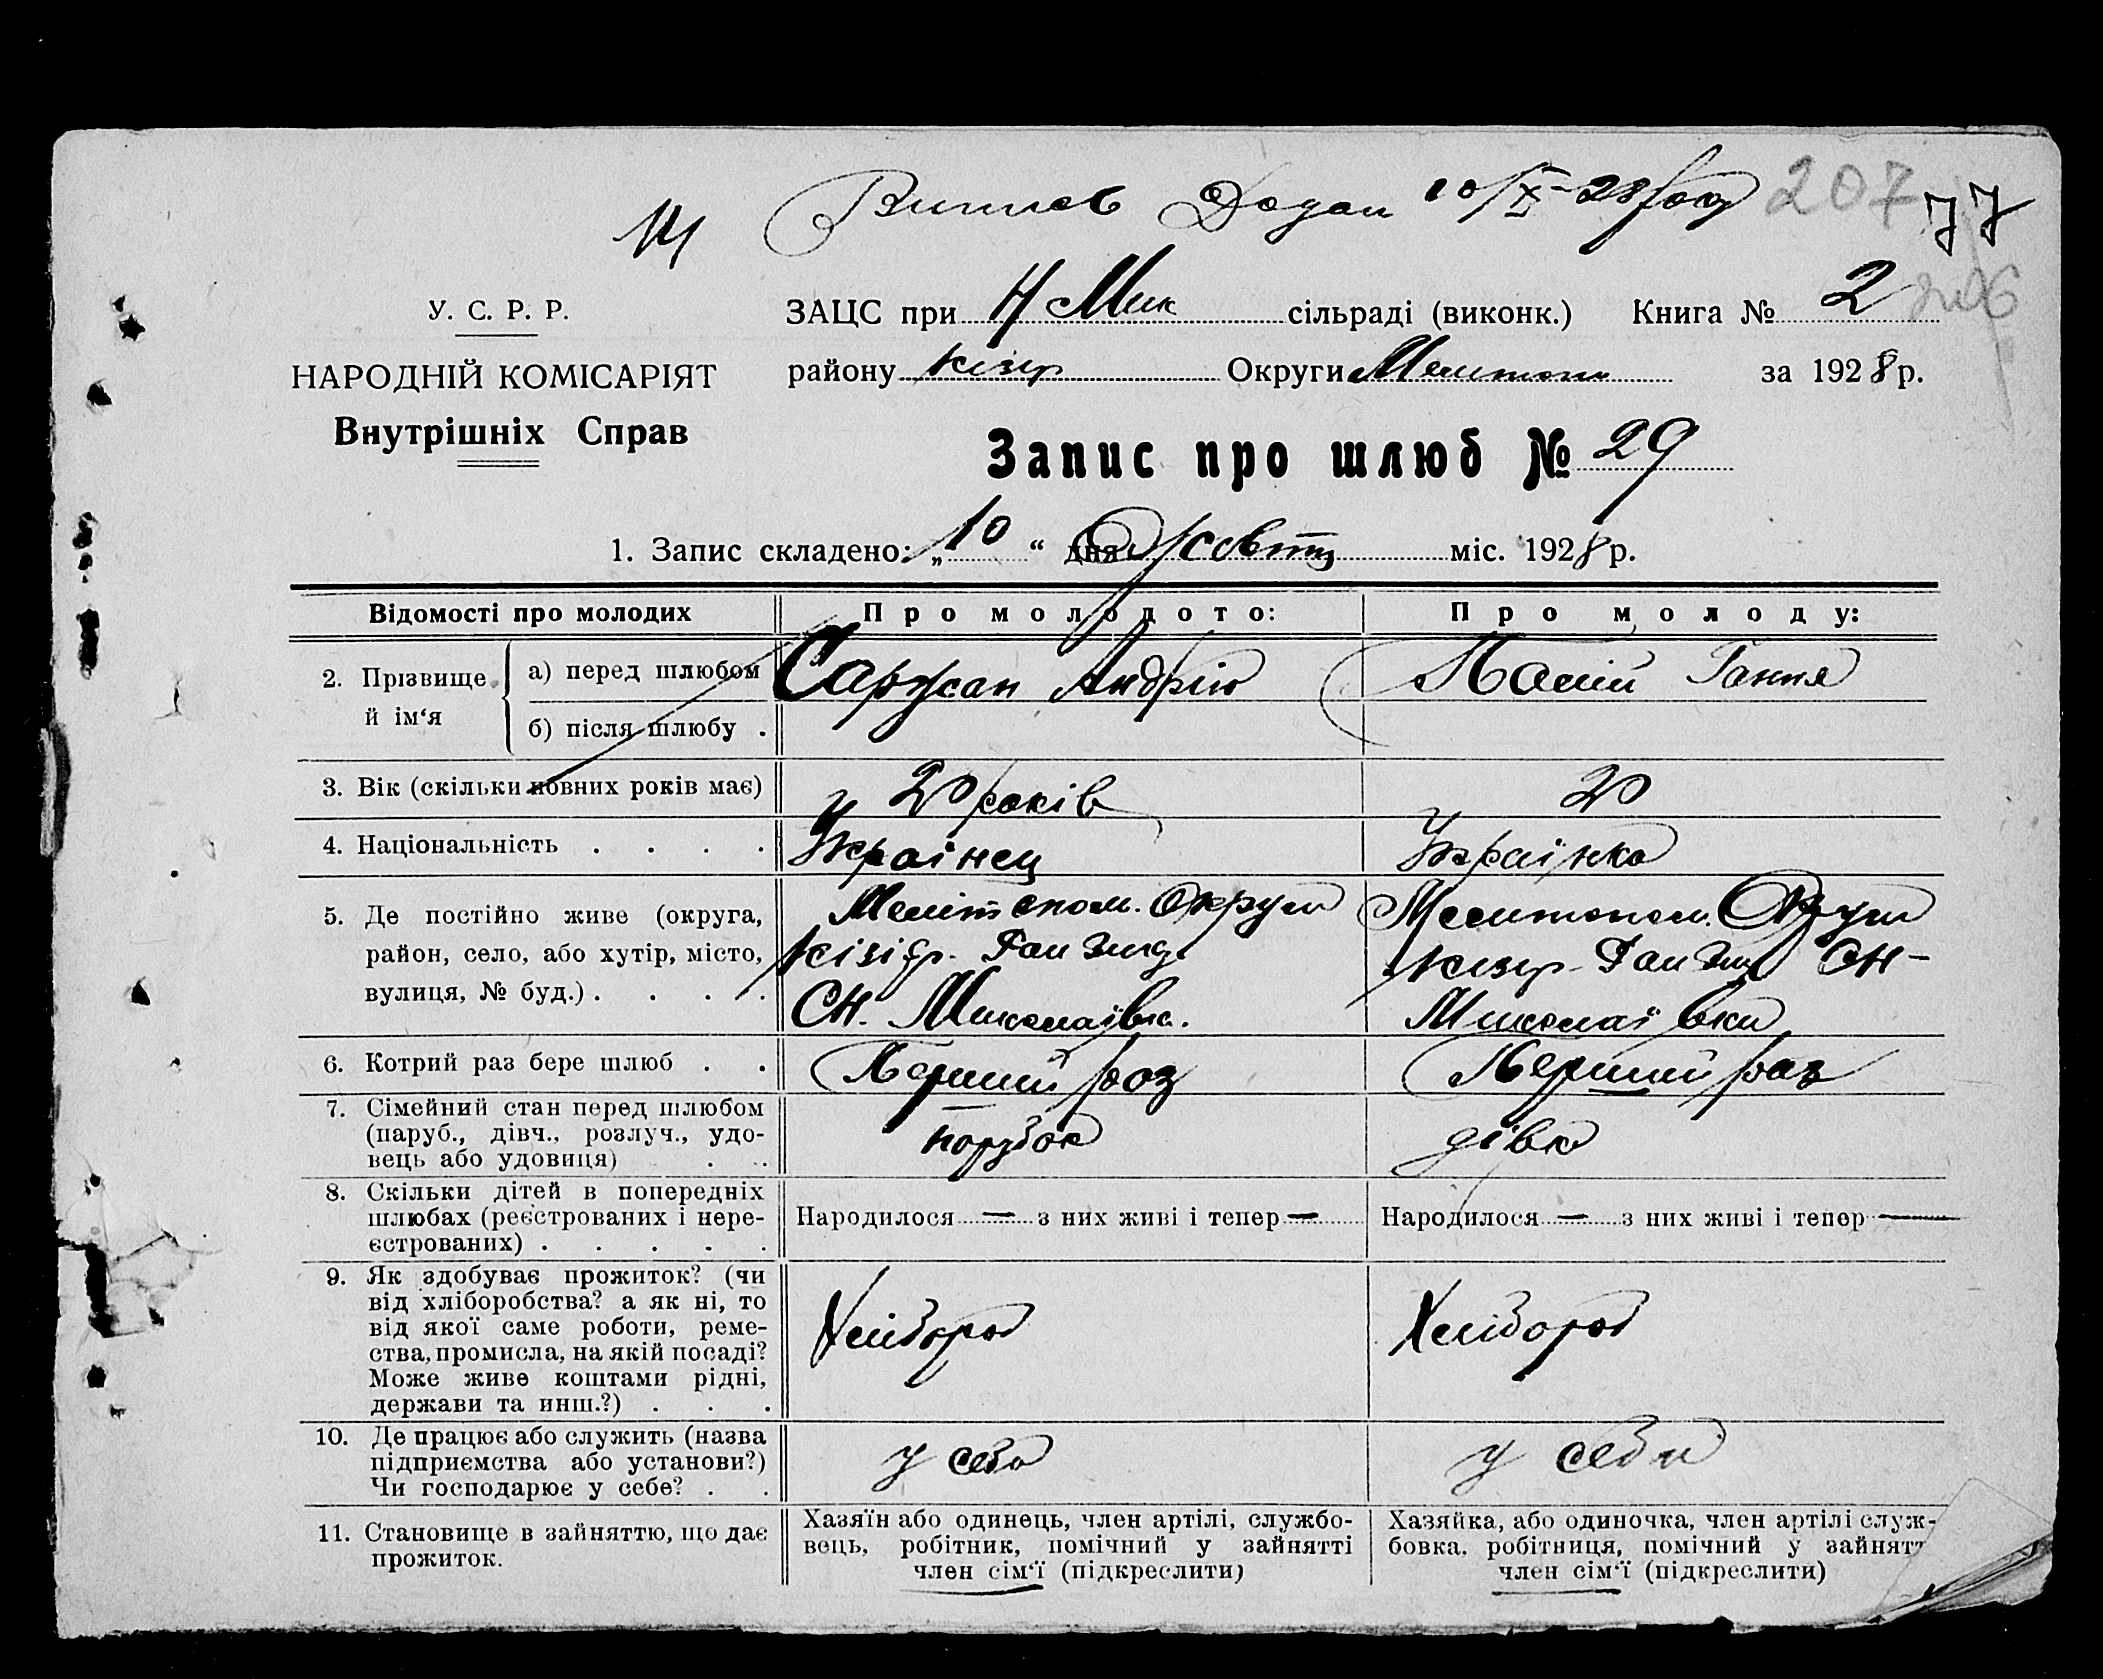 207 77
14 Витяг Додан 10/X-28 року
206
У. С. Р. Р.
НАРОДНІЙ КОМІСАРІЯТ
Внутрішніх Справ
ЗАЦС при Н Мик сільраді (виконк.) Книга № 2
району Кізир Округи Мелитоп за 1928 р.
Запис про шлюб № 29
1. Запис складено: „10“ дня жовтц міс. 1928 р.
Відомості про молодих Про молодого: Про молоду:
2. Прізвище й ім‘я
а) перед шлюбом Саржан Андрій Палій Ганна
б) після шлюбу .
3. Вік (скільки повних років має) 20 років 20
4. Національність . . . . Українец Українка
5. Де постійно живе (округа,
район, село, або хутір, місто,
вулиця, № буд.) . . . .
Мелітопол. Округи
Кізіяр. Рай
СН. Миколаївк.
Мелитопол. Округи
Кизир. Рай СН-
Миколаївки
6. Котрий раз бере шлюб . . Перший раз Перший раз
7. Сімейний стан перед шлюбом
(паруб., дівч., розлуч., удо-
вець або удовиця) . . .
парубок дівка
8. Скільки дітей в попередніх
шлюбах (реєстрованих і нере-
єстрованих) . . . . .
Народилося — з них живі і тепер — Народилося — з них живі і тепер —
9. Як здобуває прожиток? (чи
від хліборобства? а як ні, то
від якої саме роботи, реме-
ства, промисла, на якій посаді?
Може живе коштами рідні,
держави та инш.?) . . .
Хлібороб Хлібороб
10. Де працює або служить (назва
підприємства або установи?)
Чи господарює у себе? . .
у себе у себи
11. Становище в зайняттю, що дає
прожиток.
Хазяїн або одинець, член артілі, службо-
вець, робітник, помічний у зайнятті
член сім‘ї (підкреслити)
Хазяйка, або одиночка, член артілі служ-
бовка. робітниця, помічний у зайнят
член сім‘ї (підкреслити)